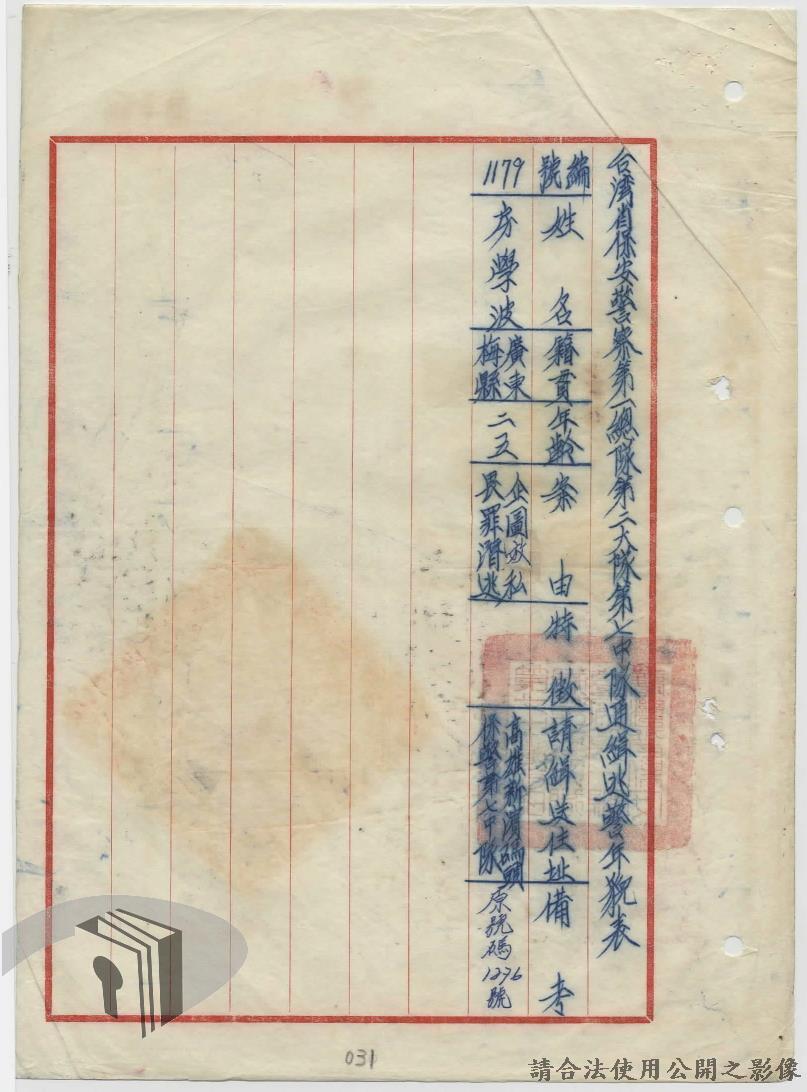 台湾省保安警察第一總隊第二大隊第七中隊通緝逃警年貌表
編號 姓名 籍貫 年齡 案由 特徵 請解送住址 備考
1179 房學波 廣東梅縣 二五 企圖破私畏罪潛逃 高雄新濱碼頭保警第七中隊 原號碼1276號
031
請合法使用公開之影像